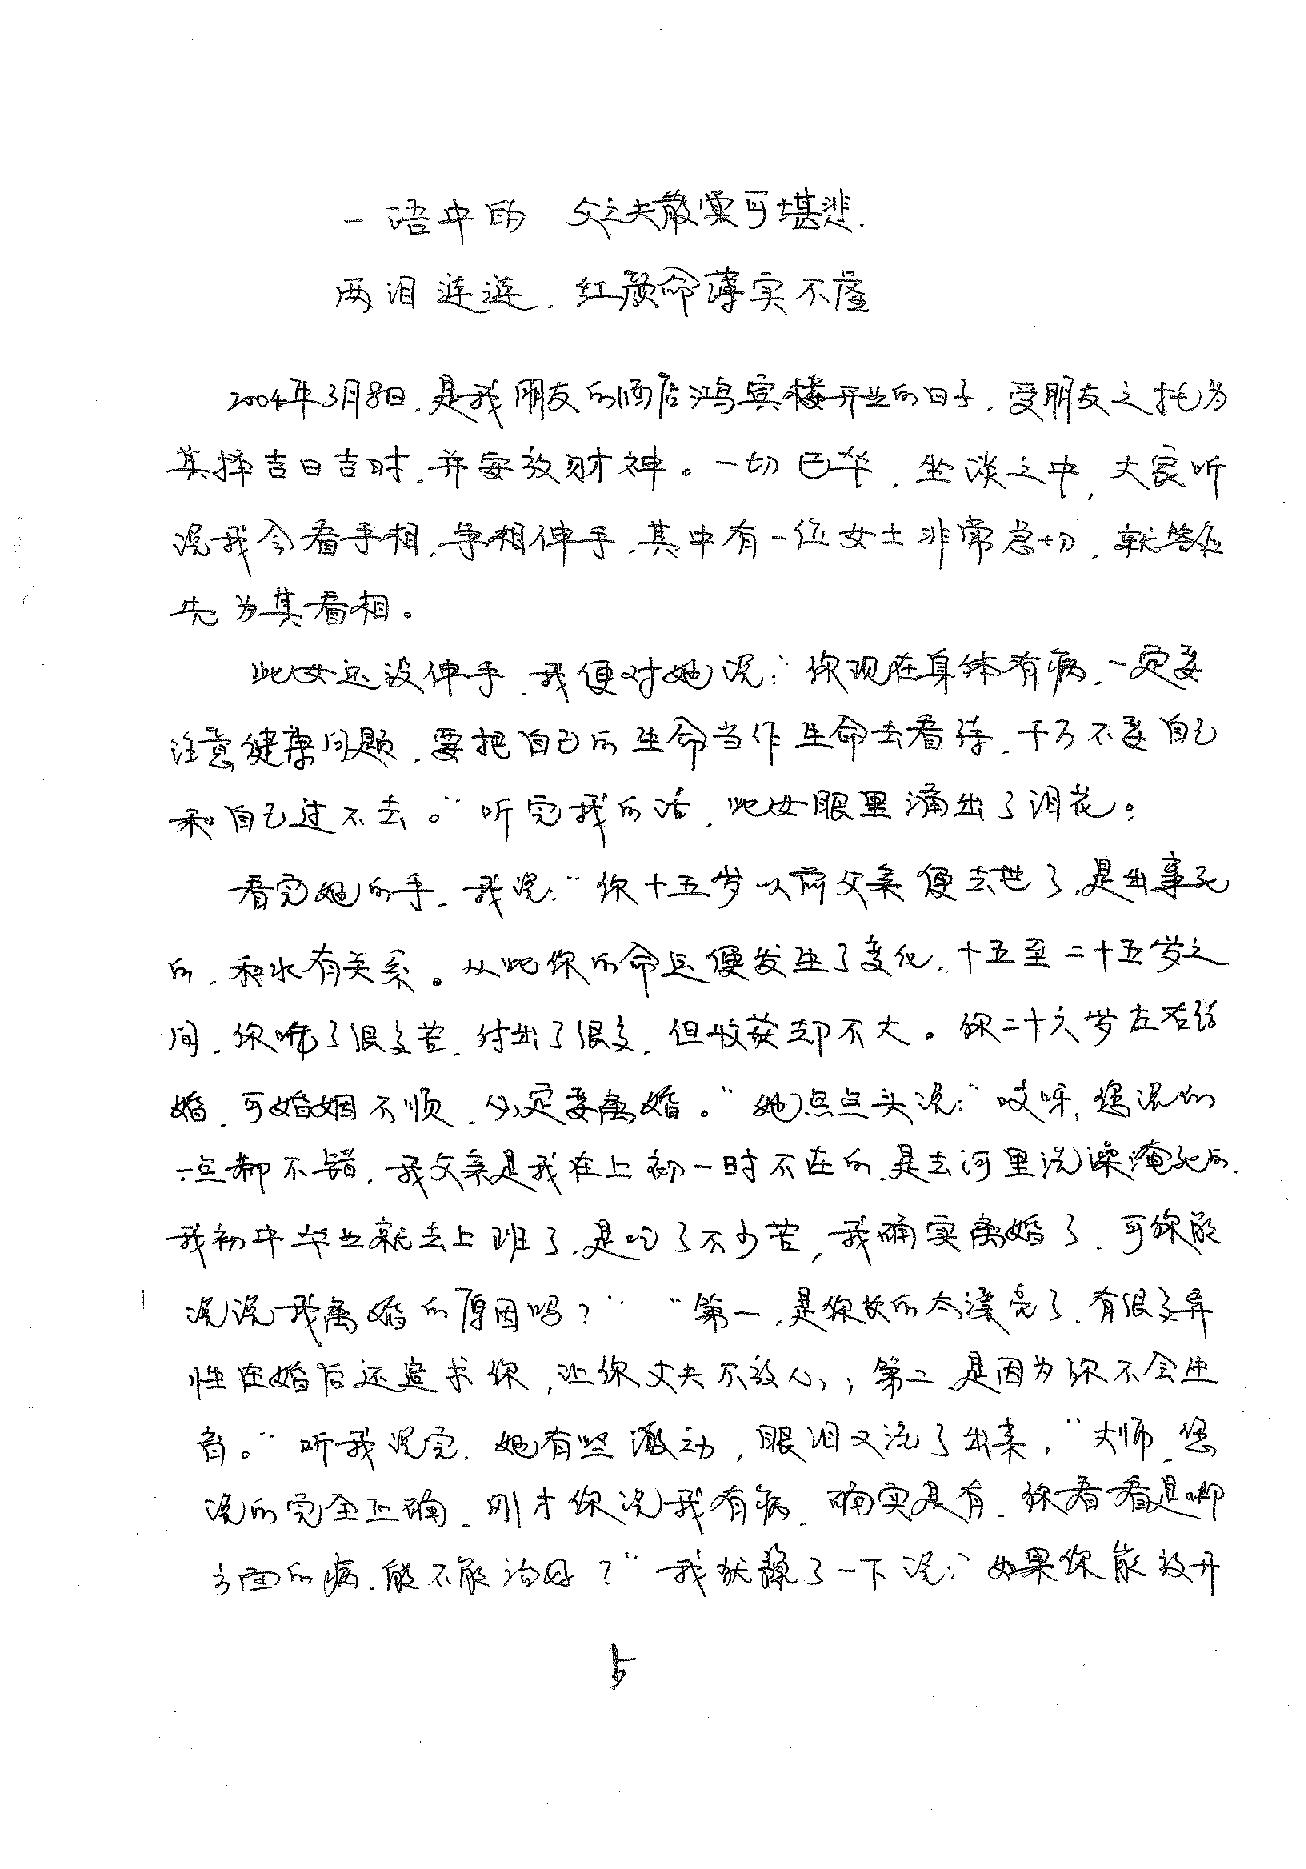 一语中的 父亡夫散实可堪悲.
两泪涟涟. 红颜命薄实不虚
2004年3月8日,是我朋友的酒店鸿宾楼开业的日子,受朋友之托为
其择吉日吉时,并安放财神。一切已毕,坐谈之中,大家听
说我会看手相,争相伸手,其中有一位女士非常急切,就答应
先为其看相。
此女还没伸手,我便对她说:“你现在身体有病,一定要
注意健康问题,要把自己的生命当作生命去看待,千万不要自己
和自己过不去。”听完我的话,此女眼里涌出了泪花。
看完她的手,我说:“你十五岁以前父亲便去世了,是出事死
的,和水有关系。从此你的命运便发生了变化,十五至二十五岁之
间,你吃了很多苦,付出了很多,但收获却不大。你二十六岁左右结
婚,可婚姻不顺,必定要离婚。”她点点头说:“哎呀,您说的
一点都不错,我父亲是我在上初一时不在的,是去河里洗澡淹死的.
我初中毕业就去上班了,是吃了不少苦,我确实离婚了,可你能
说说我离婚的原因吗?” “第一,是你长的太漂亮了,有很多异
性在婚后还追求你,让你丈夫不放心;第二,是因为你不会生
育。”听我说完,她有些激动,眼泪又流了出来,“大师,您
说的完全正确,刚才你说我有病,确实是有,你看看是哪
方面的病,能不能治好?”我沉稳了一下说:“如果你能放开
5